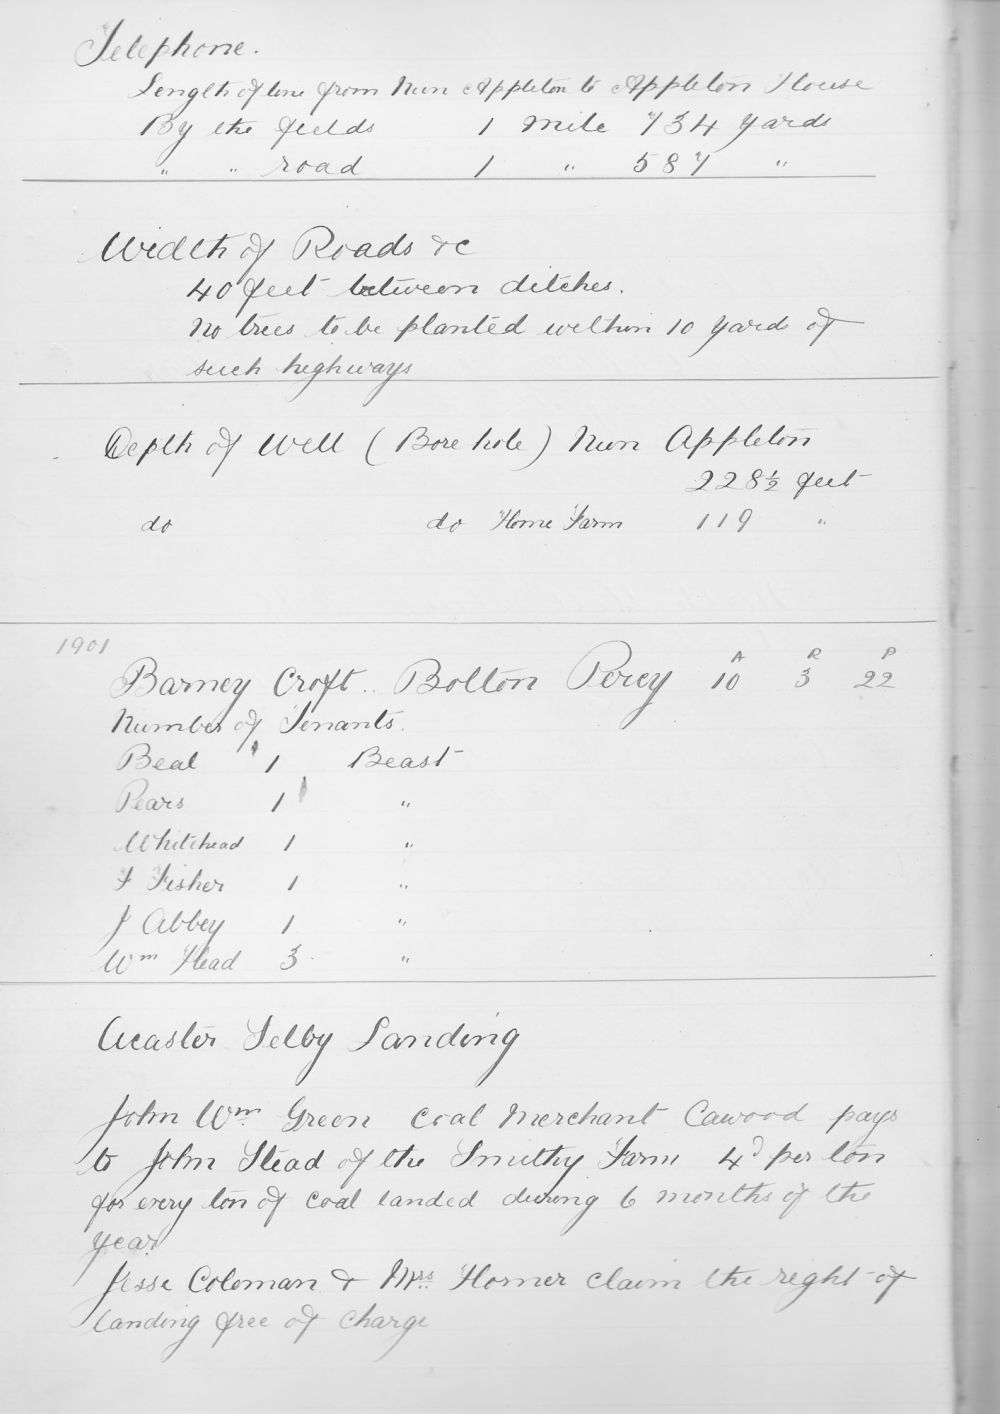 Telephone.
Length of line from Nun Appleton to Appleton House
By the fields 1 Mile 734 yards
" " road 1 " 587 "
Width of Roads &c
40 feet between ditches.
No trees to be planted within 10 yards of
such highways
Depth of Well (Bore hole) Nun Appleton
228½ feet
do do Home Farm 119 "
1901
A R P
Barney Croft.. Bolton Percy 10 3 22
Number of Tenants.
Beal 1 Beast
Pears 1 "
Whitehead 1 "
F Fisher 1 "
J Abbey 1 "
Wm Head 3 "
Acaster Selby Landing
John Wm Green Coal Merchant Cawood pays
to John Stead of the Smithy Farm 4d per ton
for every ton of coal landed during 6 months of the
year
Jesse Coleman & Mrs Horner claim the right of
landing free of charge